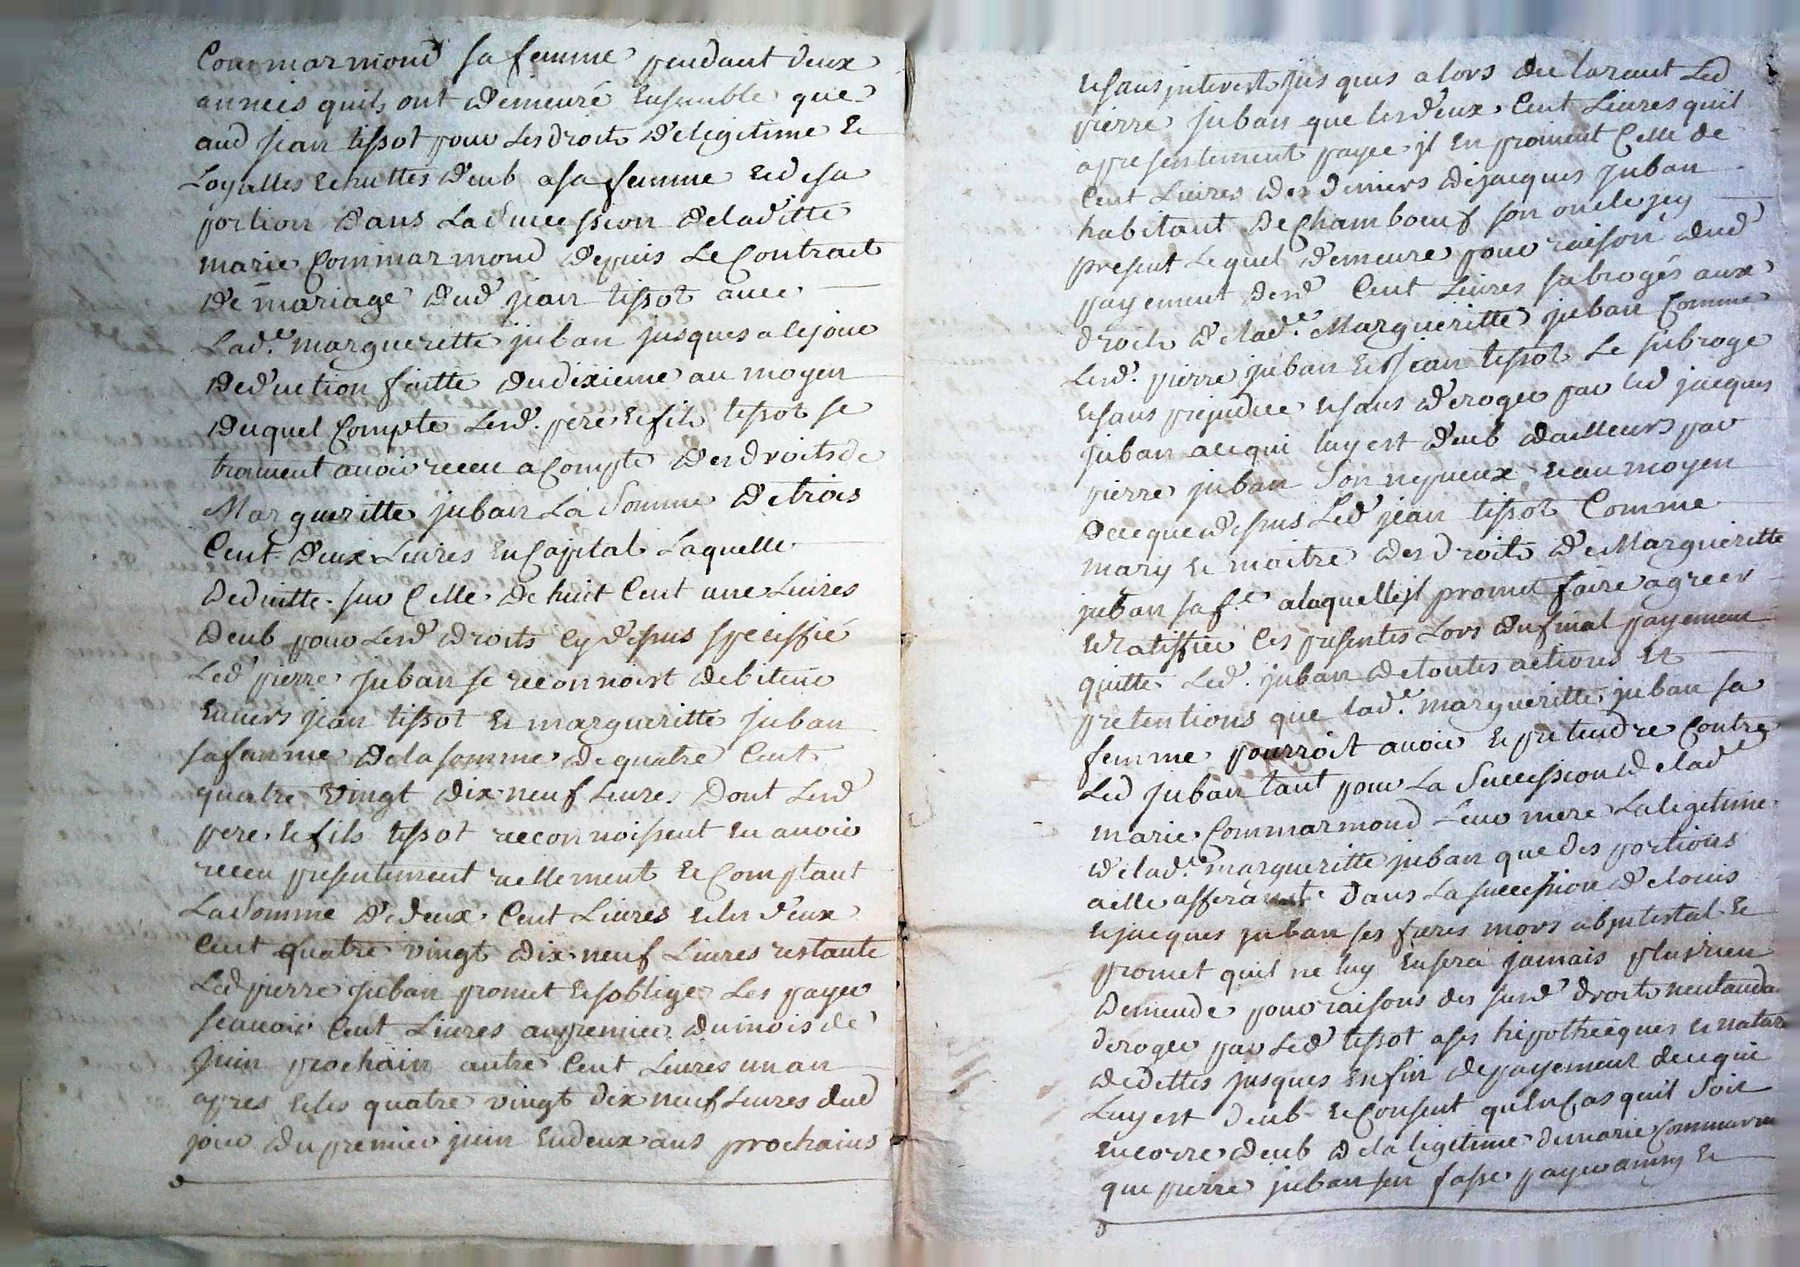 Commarmond sa femme pendant deux
années quils ont demeuré Ensemble que
aud jean tissot pour les droits de legitime Et
Loyalles Echuttes deub a sa femme Et de sa
portion dans La Succession de laditte
marie Commarmond depuis Le Contract
de mariage dud jean tissot avec
Lad.e margueritte juban jusques a ce jour
deduction faitte du dixieme au moyen
duquel Compte Lesd. pere Et fils tissot se
trouvent avoir receu a Compte des droits de
Margueritte juban La Somme de trois
Cent deux Livres En Capital Laquelle
deduitte sur Celle de huit Cent une Livres
deub pour Lesd droits cy dessus speciffié
Led pierre juban se reconnoist debiteur
Envers jean tissot Et margueritte juban
sa famme de la somme de quatre Cent
quatre vingt dix neuf Livres Dont Lesd
pere Et fils tissot reconnoissent En avoir
receu presentement reellement Et Comptant
La Somme de deux Cent Livres Et les deux
Cent quatre vingt dix neuf Livres restante
Led pierre juban promet Et soblige Les payer
scavoir Cent Livres au premier du mois de
juin prochain autre Cent Livres un an
apres Et les quatre vingt dix neuf Livres dud
jour du premier juin En deux ans prochains
Et sans interest jusques alors declarant Led
pierre juban que les deux Cent Livres quil
a presentement payée jl En provient Celle de
Cent Livres des deniers de jacques juban
habitant de Chambœuf son oncle jcy
present Lequel demeure pour raison dud
payement desd Cent Livres subrogés aux
droits de lad.e Margueritte juban Comme
Lesd. pierre juban Et jean tissot Le subroge
Et sans prejudice Et sans deroger par led jacques
juban a ce qui luy est deub dailleurs par
pierre juban Son nepveux Et au moyen
de ce que dessus Led jean tissot Comme
mary Et maitre des droits de Margueritte
juban sa f.e a laquelle jl promet faire agreer
Et ratiffier Ces presentes Lors du final payement
quitte Led. juban de toutes actions Et
pretentions que lad.e margueritte juban sa
femme pourroit avoir Et pretendre Contre
Led juban tant pour La Succession de lad.e
marie Commarmond Leur mere La legitime
de lad.e margueritte juban que des portions
a elle afferante Dans La succession de Louis
Et jacques juban ses freres mors abjntestat Et
promet quil ne luy En sera jamais plus rien
Demende pour raisons des susd droits
deroger par Led tissot a ses hipotheques Et nature
de dettes jusques Enfin de payement de ce qui
Luy est deub Et Consent quEn Cas quil Soit
Encorre deub de la legitime de marie Commarm
que pierre juban sen fasse payer ainsy Et